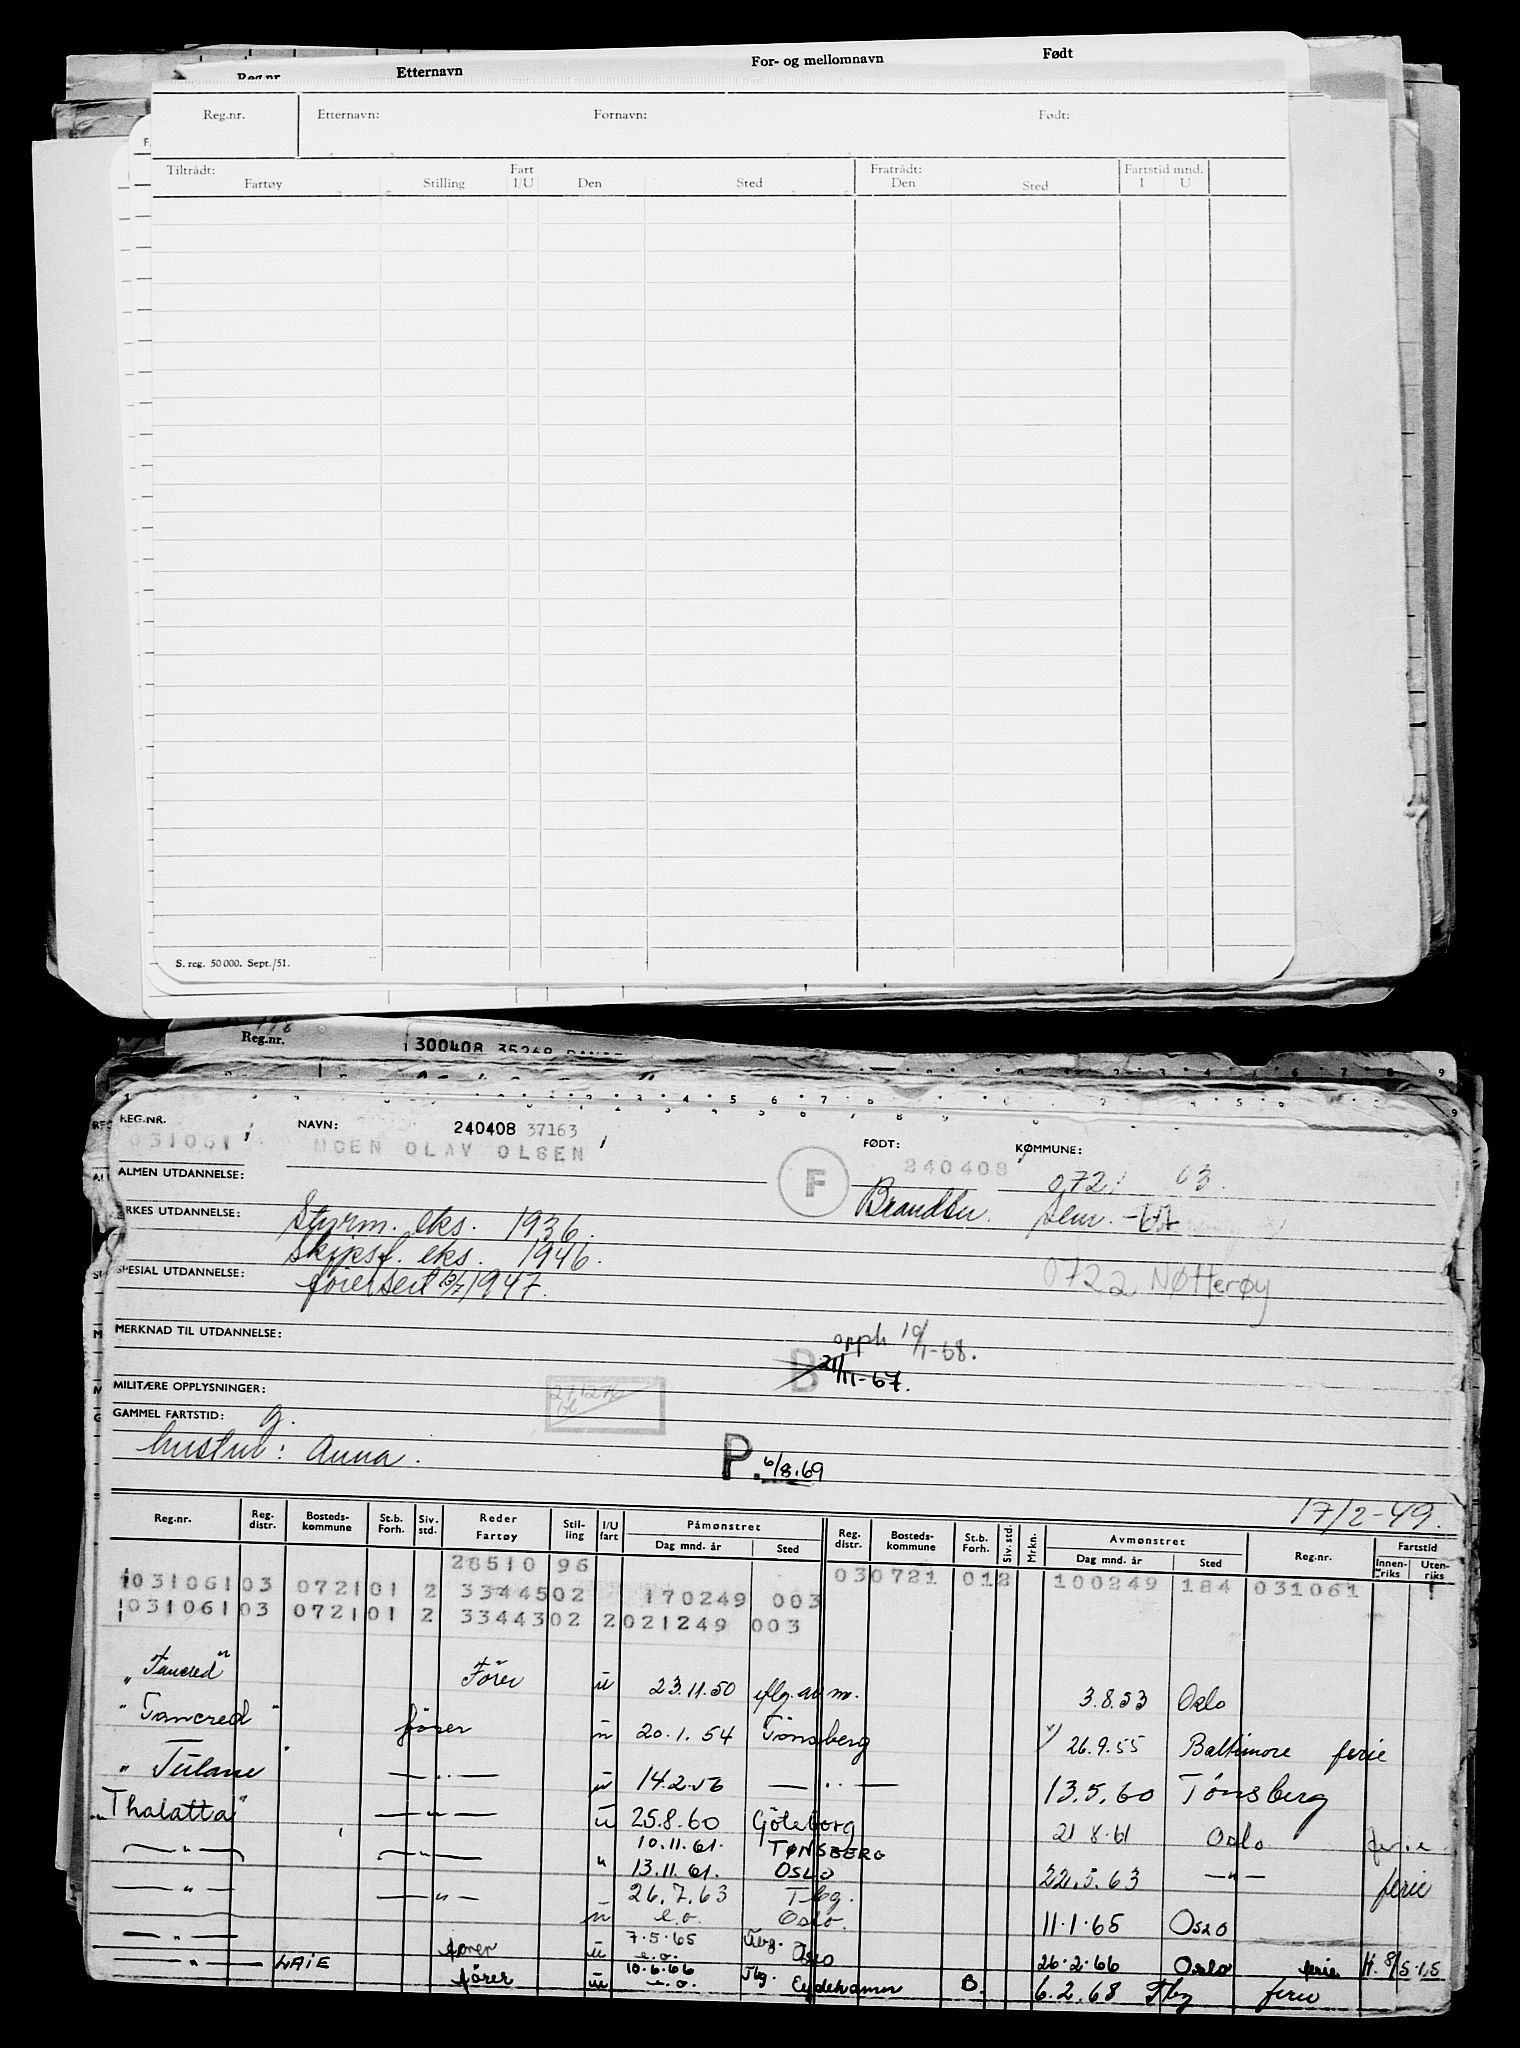 Reg.nr. Etternavn For- og mellomnavn Født
Reg.nr. Etternavn: Fornavn: Født:
Tiltrådt: Fart Fratrådt: Fartstid mnd.
Fartøy Stilling I/U Den Sted Den Sted I U
S. reg. 50 000. Sept./51.
198
Reg.nr. 300408 35268
REG.NR. NAVN: 240408 37163 FØDT: KOMMUNE:
031061 MOEN OLAV OLSEN F 240408 0721 03
ALMEN UTDANNELSE:
YRKES UTDANNELSE: Styrm. eks. 1936. Brandbu. Sem.
Skipsf. eks. 1946.
SPESIAL UTDANNELSE: 1947. 0722 Nøtterøy
MERKNAD TIL UTDANNELSE: opph 10/1-68.
B 21/11-67.
MILITÆRE OPPLYSNINGER:
GAMMEL FARTSTID: g.
hustru: Anna. P. 6/8.69
17/2-49.
Reg.nr. Reg. distr. Bosteds-kommune St.b. Forh. Siv. std. Reder Fartøy Stil-ling I/U fart Påmønstret Dag mnd. år Sted Reg. distr. Bosteds-kommune St.b. Forh. Siv. std. Mrkn. Avmønstret Dag mnd. år Sted Reg.nr. Fartstid Innen-riks Uten-riks
28510 96 030721 012 100249 184 031061
103106103 072101 2 3344502 170249 003
103106103 072101 2 3344302 2021249 003
"Tancred" Fører u 23.11.50 3.8.53 Oslo
"Tancred" fører u 20.1.54 Tønsberg 26.9.55 Baltimore ferie
" Tulane — " — u 14.2.56 — " — 13.5.60 Tønsberg
"Thalatta" — " — u 25.8.60 Göteborg 21 8.61 Oslo ferie
— " — — " — " 10.11.61. TØNSBERG
13.11.61. OSLO 22.5.63 — " — ferie
— " — — " — u 26.7.63 Tbg.
e.o. Oslo. 11.1.65 Oslo
— " — fører u 7.5.65 Tbg.
e.o. Oslo 26.2.66 Oslo ferie H. 8/5.1,5
— " — LAIE fører u 10.6.66 Tbg.
e.o. Eydehavn B. 6.2.68 Tbg ferie